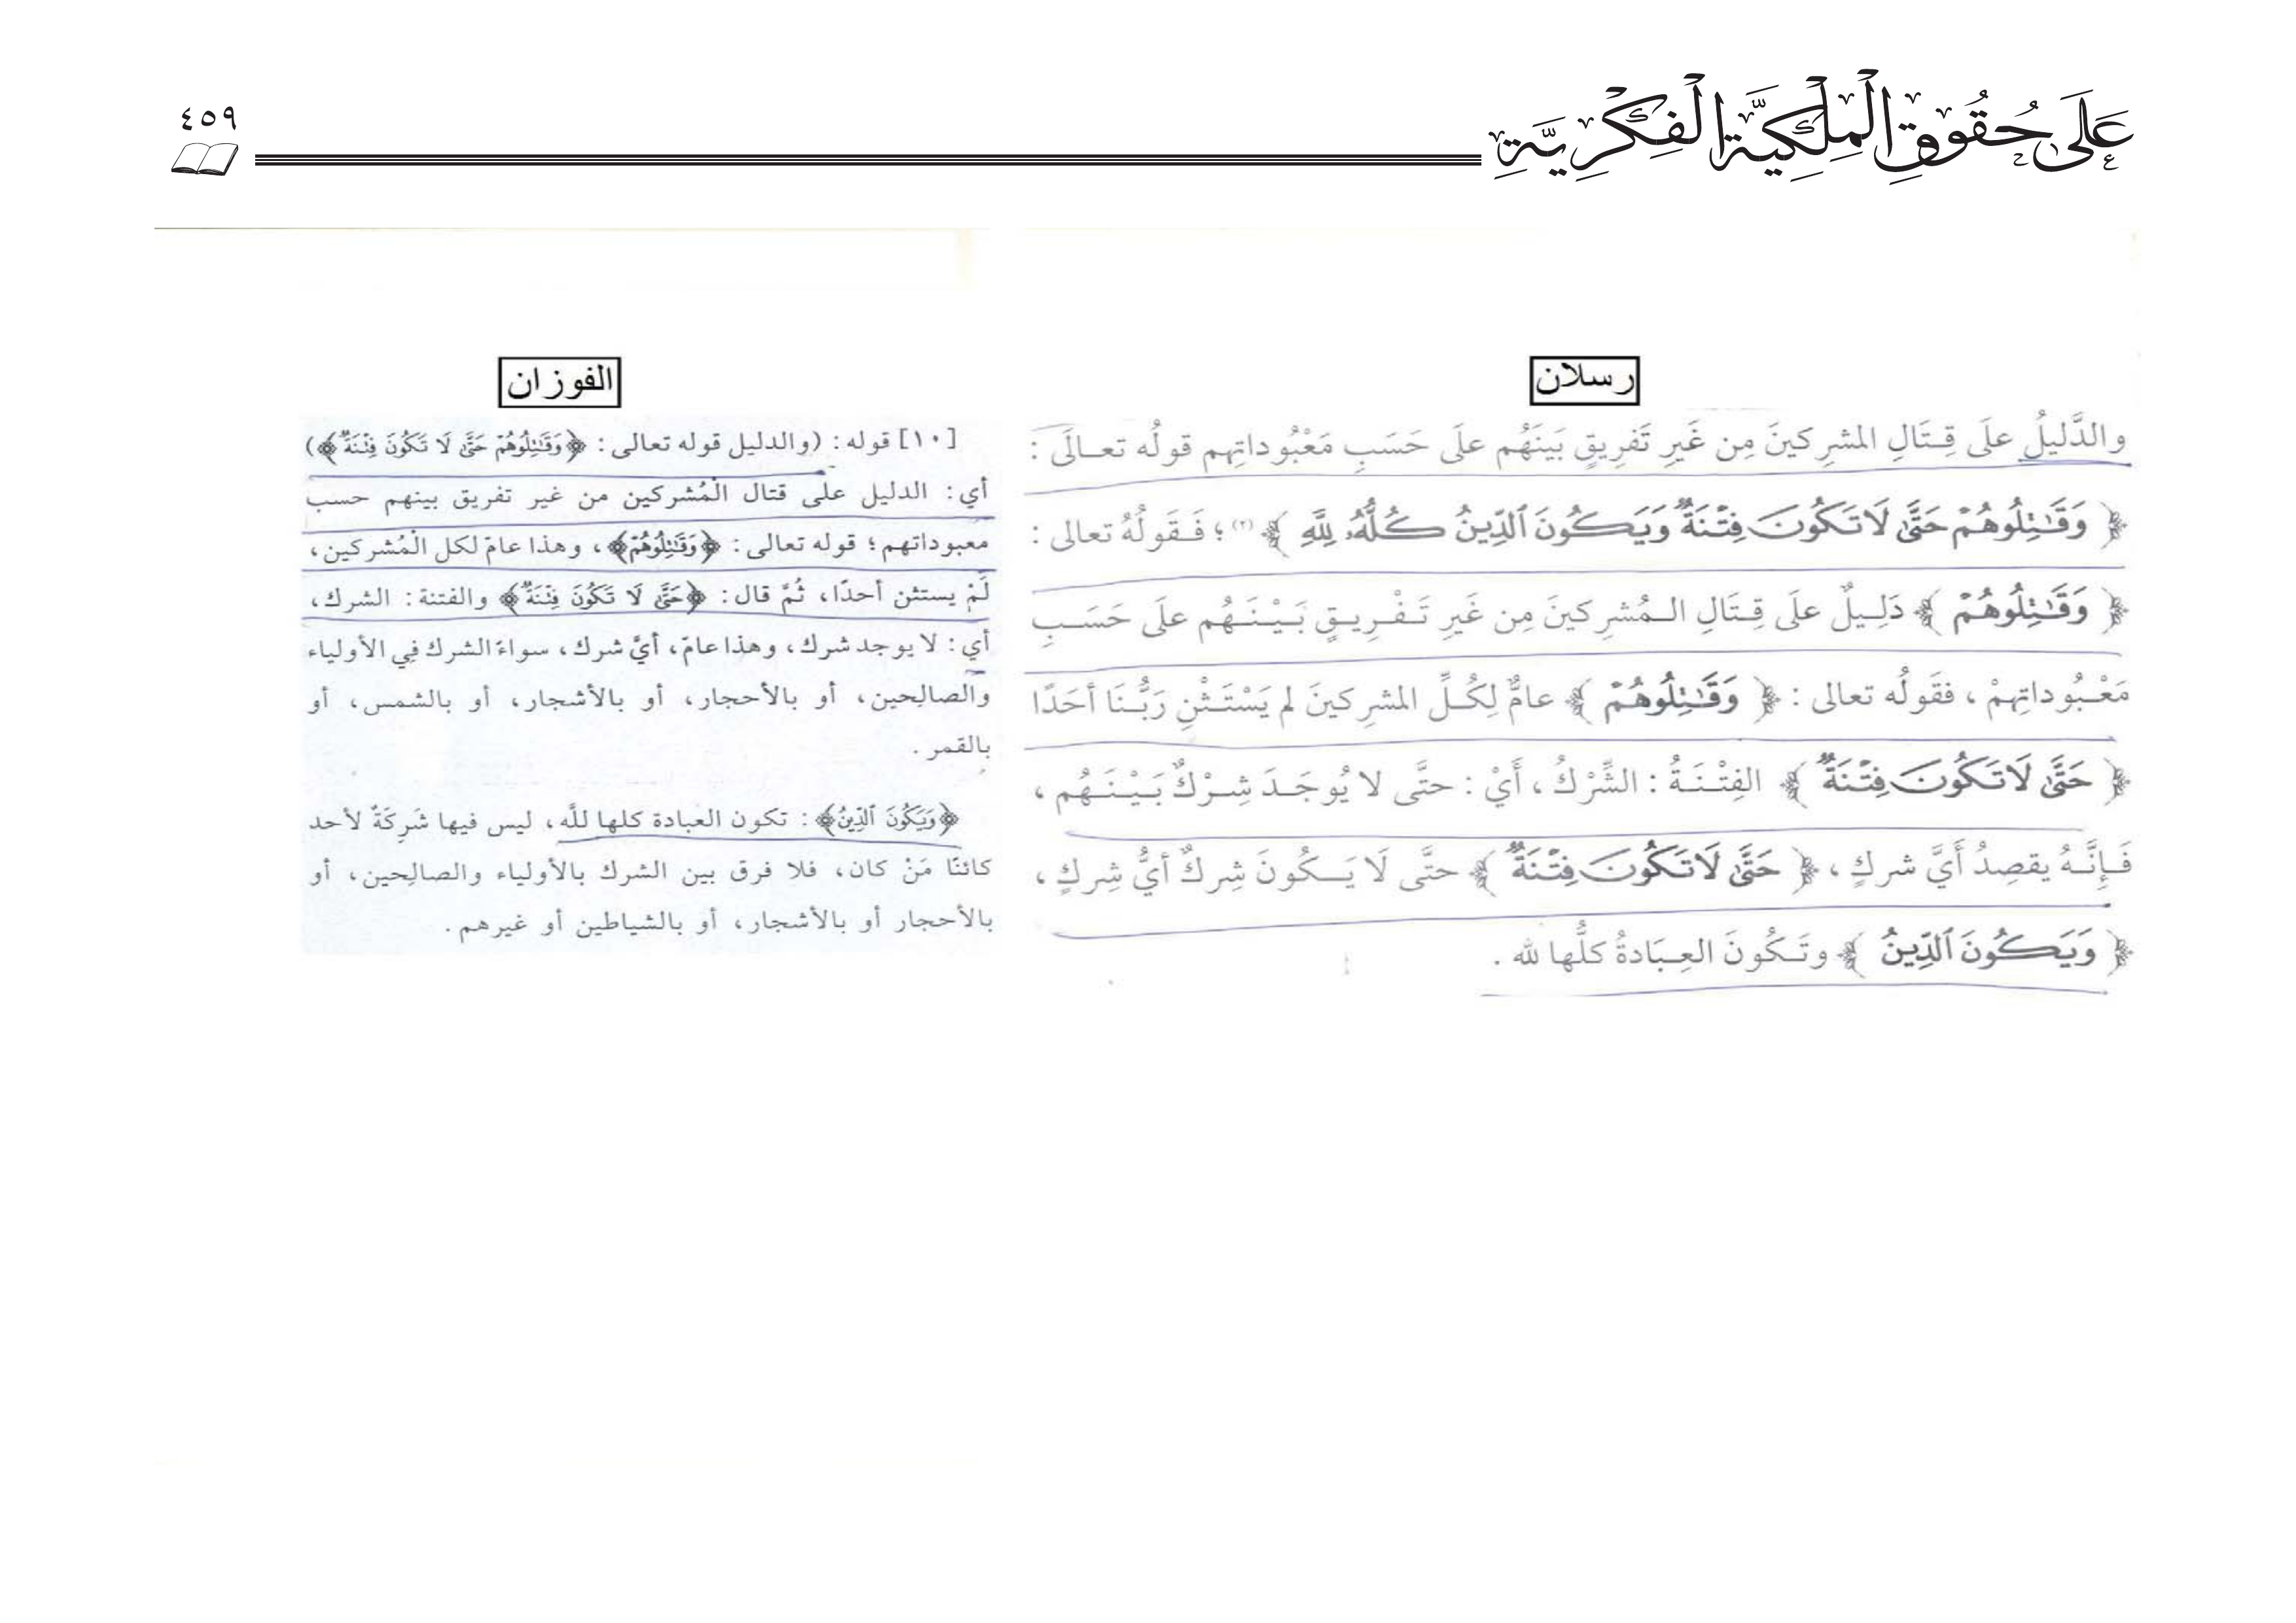 عَلَى حُقُوقِ الْمِلْكِيَّةِ الْفِكْرِيَّةِ
٤٥٩
رسلان
والدَّليلُ علَى قِتَالِ المشرِكينَ مِن غَيرِ تَفرِيقٍ بَينَهُم علَى حَسَبِ مَعْبُوداتِهِم قولُه تعالَى :
﴿ وَقَٰتِلُوهُمْ حَتَّىٰ لَا تَكُونَ فِتْنَةٌ وَيَكُونَ ٱلدِّينُ كُلُّهُۥ لِلَّهِ ﴾ (٢) ؛ فَقَولُهُ تعالى :
﴿ وَقَٰتِلُوهُمْ ﴾ دَلِيلٌ علَى قِتَالِ المُشرِكينَ مِن غَيرِ تَفْرِيقٍ بَيْنَهُم علَى حَسَبِ
مَعْبُوداتِهِمْ ، فقَولُه تعالى : ﴿ وَقَٰتِلُوهُمْ ﴾ عامٌّ لِكُلِّ المشرِكينَ لم يَسْتَثْنِ رَبُّنَا أحَدًا
﴿ حَتَّىٰ لَا تَكُونَ فِتْنَةٌ ﴾ الفِتْنَةُ : الشِّرْكُ ، أَيْ : حتَّى لا يُوجَدَ شِرْكٌ بَيْنَهُم ،
فَإِنَّهُ يقصِدُ أَيَّ شركٍ ، ﴿ حَتَّىٰ لَا تَكُونَ فِتْنَةٌ ﴾ حتَّى لَا يَكُونَ شِركٌ أيُّ شِركٍ ،
﴿ وَيَكُونَ ٱلدِّينُ ﴾ وتَكُونَ العِبَادةُ كلُّها لله .
الفوزان
[١٠] قوله : (والدليل قوله تعالى : ﴿وَقَٰتِلُوهُمْ حَتَّىٰ لَا تَكُونَ فِتْنَةٌ﴾)
أي: الدليل على قتال الْمُشركين من غير تفريق بينهم حسب
معبوداتهم؛ قوله تعالى: ﴿وَقَٰتِلُوهُمْ﴾، وهذا عامّ لكل الْمُشركين،
لَمْ يستثن أحدًا، ثُمَّ قال: ﴿حَتَّىٰ لَا تَكُونَ فِتْنَةٌ﴾ والفتنة: الشرك،
أي: لا يوجد شرك، وهذا عامّ، أيَّ شرك، سواءً الشرك فِي الأولياء
والصالِحين، أو بالأحجار، أو بالأشجار، أو بالشمس، أو
بالقمر .
﴿وَيَكُونَ ٱلدِّينُ﴾ : تكون العبادة كلها للَّه، ليس فيها شَرِكَةٌ لأحد
كائنًا مَنْ كان، فلا فرق بين الشرك بالأولياء والصالِحين، أو
بالأحجار أو بالأشجار، أو بالشياطين أو غيرهم .